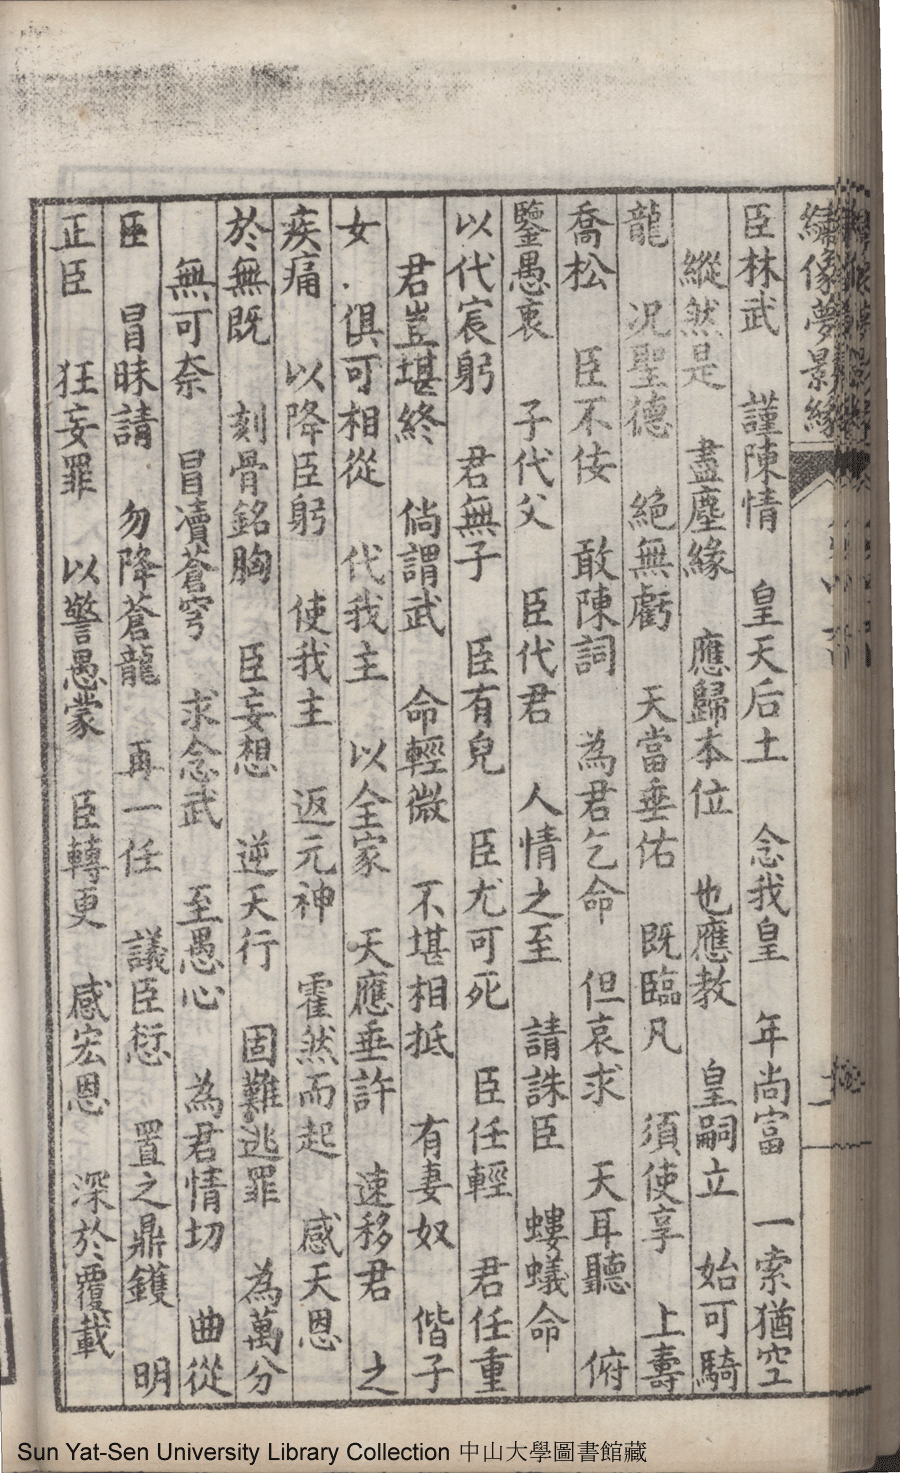 繡像夢影緣
臣林武　謹陳情　皇天后土　念我皇　年尚富　一索猶空
縱然是　盡塵緣　應歸本位　也應教　皇嗣立　始可騎
龍　况聖德　絕無虧　天當垂佑　既臨凡　須使享　上壽
喬松　臣不佞　敢陳詞　為君乞命　但哀求　天耳聽　俯
鑒愚衷　子代父　臣代君　人情之至　請誅臣　螻蟻命
以代宸躬　君無子　臣有兒　臣尤可死　臣任輕　君任重
君豈堪終　倘謂武　命輕微　不堪相抵　有妻奴　偕子
女　俱可相從　代我主　以全家　天應垂許　速移君　之
疾痛　以降臣躬　使我主　返元神　霍然而起　感天恩
於無既　刻骨銘胸　臣妄想　逆天行　固難逃罪　為萬分
無可奈　冒凟蒼穹　求念武　至愚心　為君情切　曲從
臣　冒昧請　勿降蒼龍　再一任　議臣愆　置之鼎鑊　明
正臣　狂妄罪　以警愚蒙　臣轉更　感宏恩　深於覆載
Sun Yat-Sen University Library Collection 中山大學圖書館藏